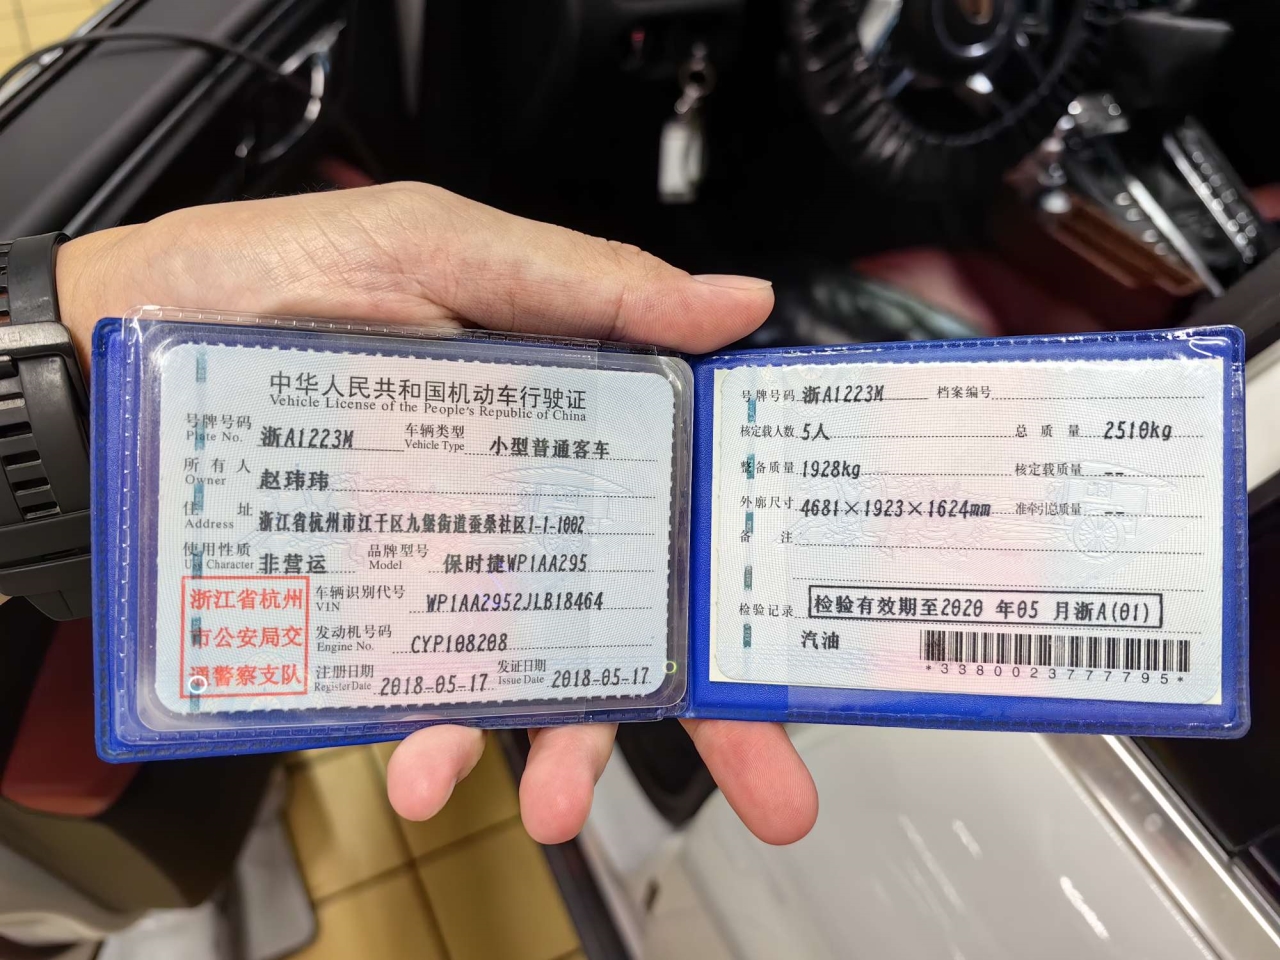 中华人民共和国机动车行驶证
Vehicle License of the People's Republic of China
号牌号码 浙A1223M 车辆类型 小型普通客车
Plate No. Vehicle Type
所有人 赵玮玮
Owner
住址 浙江省杭州市江干区九堡街道蚕桑社区1-1-1002
Address
使用性质 非营运 品牌型号 保时捷WP1AA295
Use Character Model
浙江省杭州市公安局交通警察支队
车辆识别代号 WP1AA2952JLB18464
VIN
发动机号码 CYP108208
Engine No.
注册日期 2018-05-17 发证日期 2018-05-17
Register Date Issue Date
号牌号码 浙A1223M 档案编号
核定载人数 5人 总质量 2510kg
整备质量 1928kg 核定载质量 --
外廓尺寸 4681×1923×1624mm 准牵引总质量 --
备注
检验记录 检验有效期至2020 年05 月浙A(01)
汽油
*3380023777795*